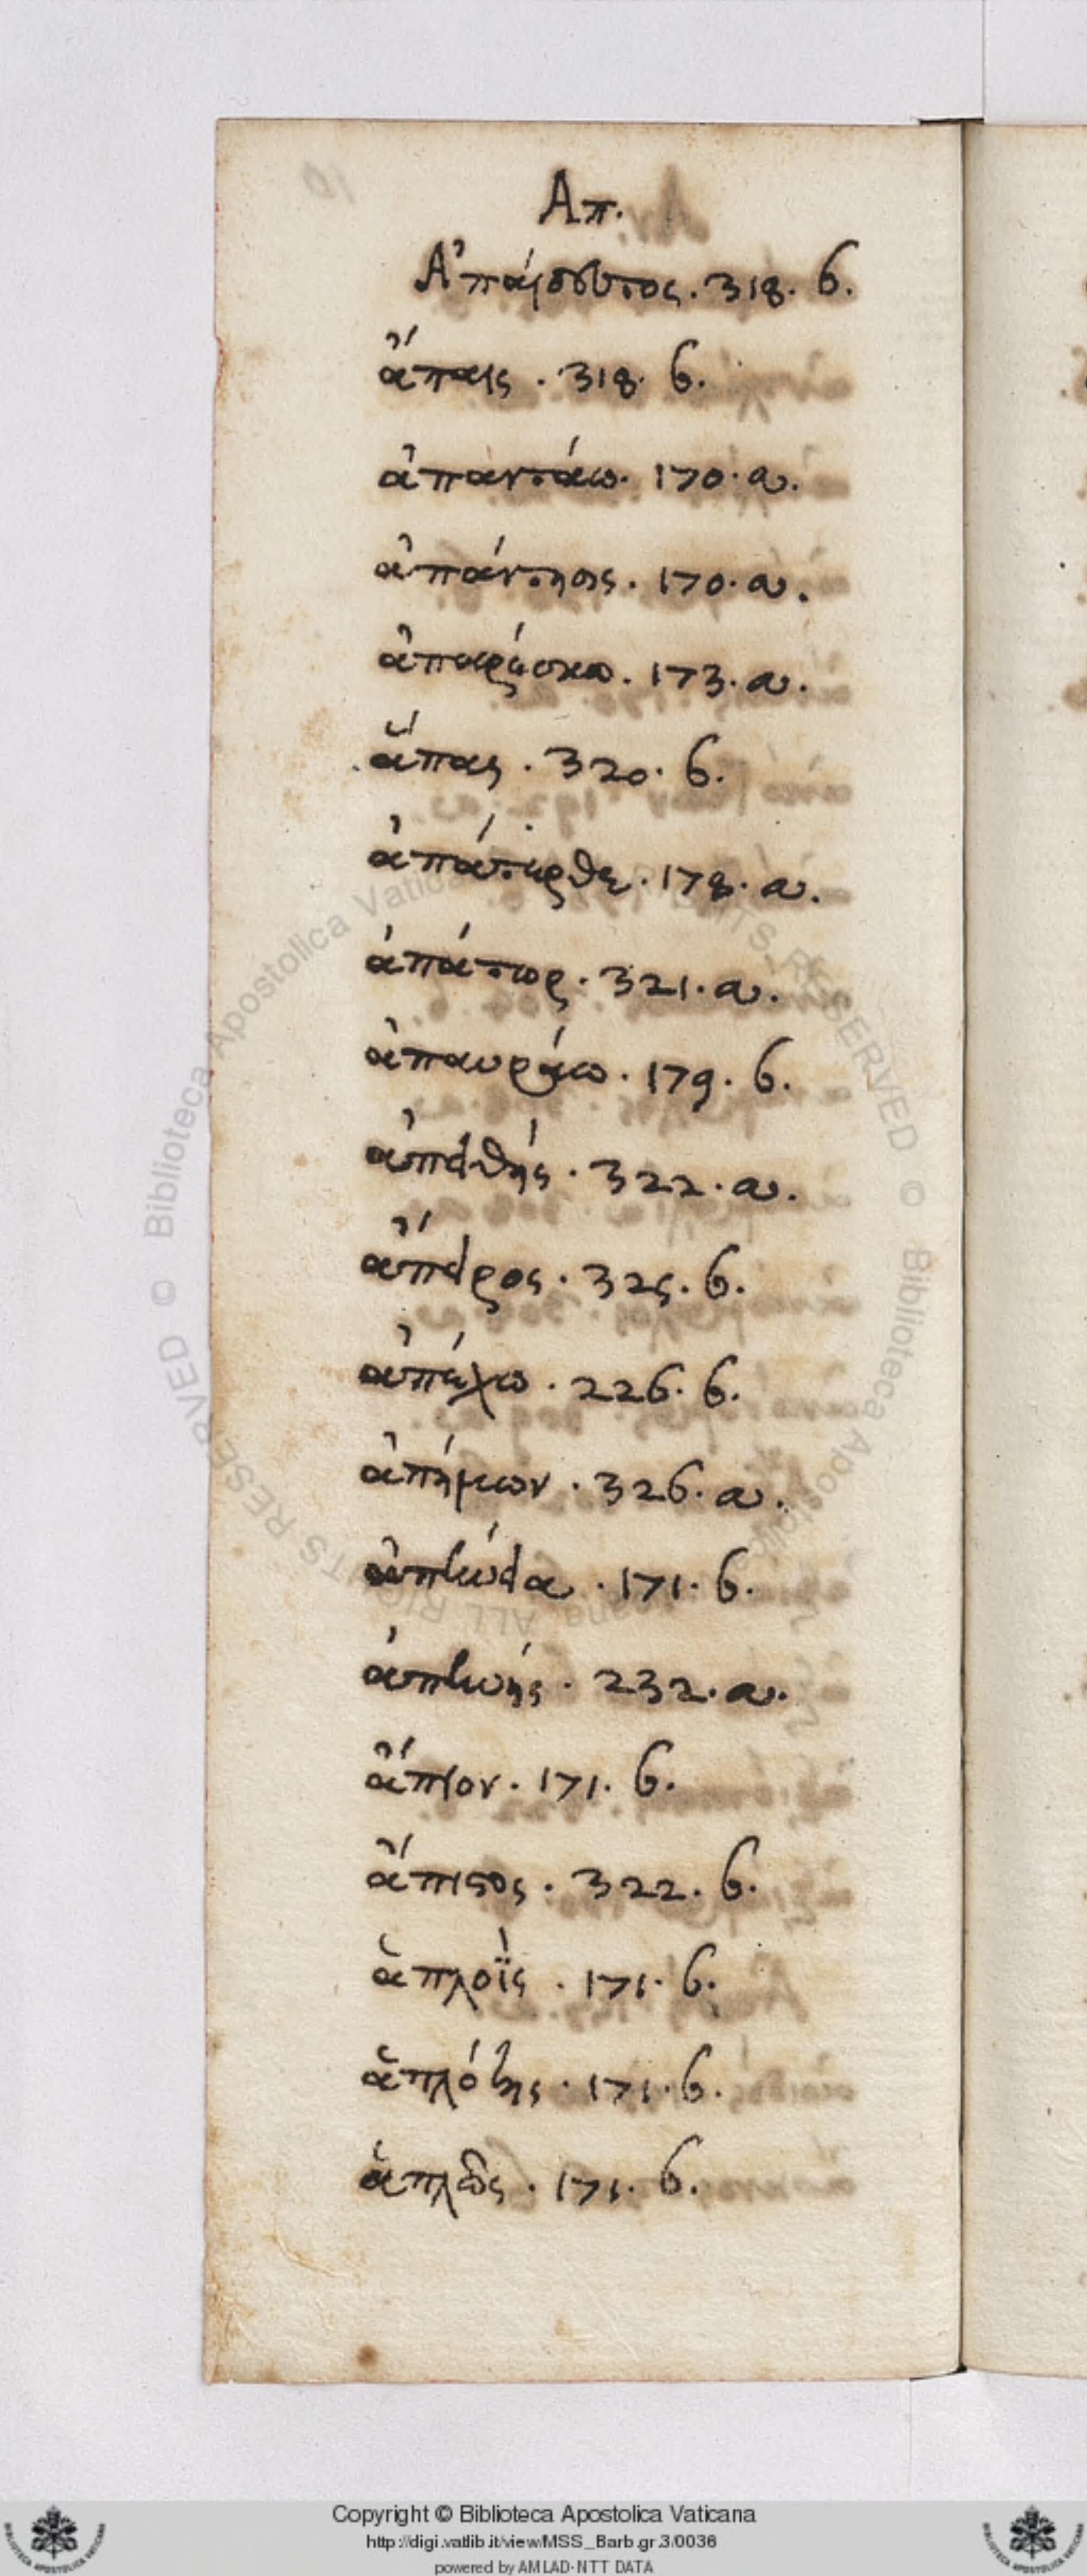 Απ.
Ἀπαίδευτος. 318. b.
ἄπαις. 318. b.
ἀπαντάω. 170. a.
ἀπάντησις. 170. a.
ἀπαρέσκω. 173. a.
ἅπας. 320. b.
ἀπάτερθε. 178. a.
ἀπάτωρ. 321. a.
ἀπαυράω. 179. b.
ἀπειθής. 322. a.
ἄπειρος. 325. b.
ἀπέχω. 226. b.
ἀπήμων. 326. a.
ἀπήνεια. 171. b.
ἀπηνής. 232. a.
ἄπιον. 171. b.
ἄπιστος. 322. b.
ἁπλοΐς. 171. b.
ἁπλότης. 171. b.
ἁπλῶς. 171. b.
© Biblioteca Apostolica Vaticana ALL RIGHTS RESERVED
Copyright © Biblioteca Apostolica Vaticana
http://digi.vatlib.it/view/MSS_Barb.gr.3/0036
powered by AMLAD-NTT DATA